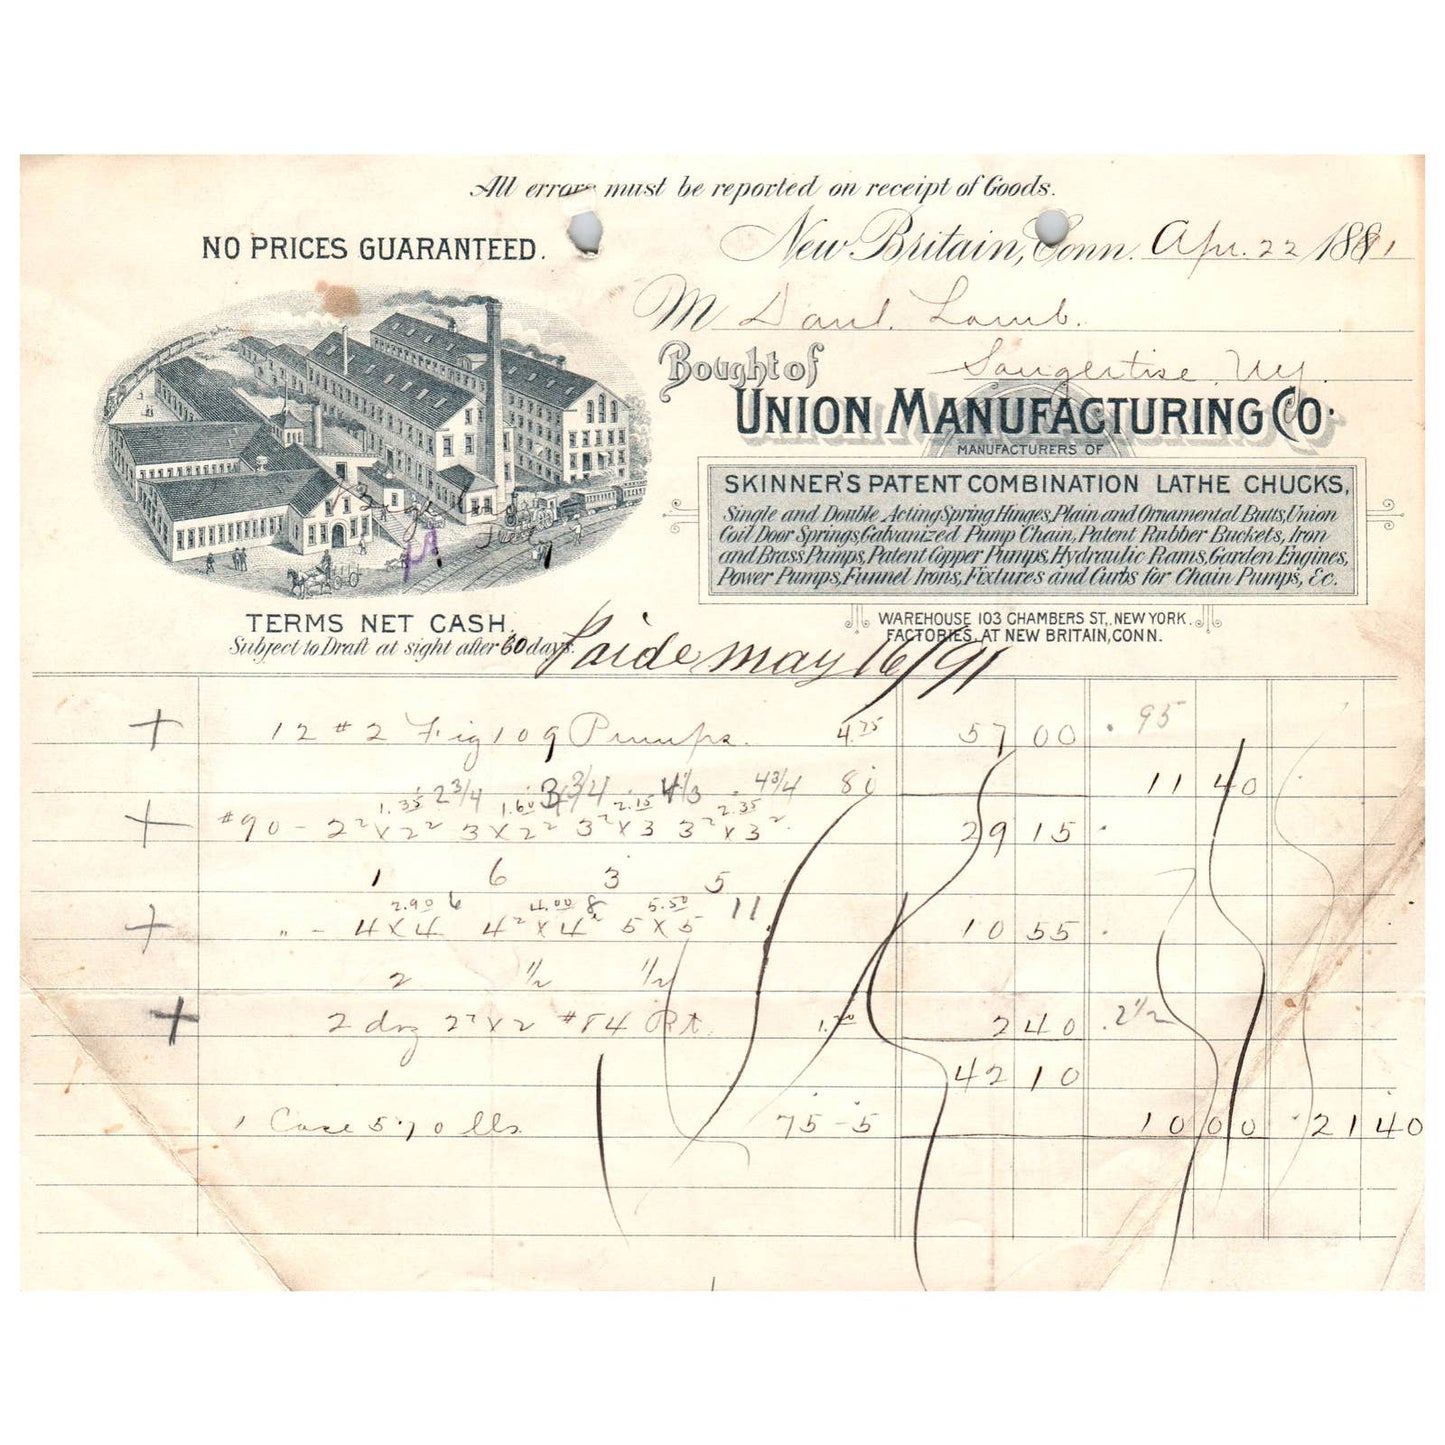 All errors must be reported on receipt of Goods.
NO PRICES GUARANTEED.
New Britain, Conn. Apr. 22 1891
M Danl. Lamb.
Saugertise Ny.
Bought of
UNION MANUFACTURING CO.
MANUFACTURERS OF
SKINNER'S PATENT COMBINATION LATHE CHUCKS,
Single and Double Acting Spring Hinges, Plain and Ornamental Butts, Union
Coil Door Springs, Galvanized Pump Chain, Patent Rubber Buckets, Iron
and Brass Pumps, Patent Copper Pumps, Hydraulic Rams, Garden Engines,
Power Pumps, Funnel Irons, Fixtures and Curbs for Chain Pumps, &c.
WAREHOUSE 103 CHAMBERS ST., NEW YORK.
FACTORIES, AT NEW BRITAIN, CONN.
TERMS NET CASH.
Subject to Draft at sight after 60 days.
Paide may 16/91
+ 12 #2 Fig 109 Pumps. 4.75 57 00 .95
80 11 40
1.35 2 3/4 1.60 3 3/4 2.15 4 1/3 2.35 4 3/4
+ #90 - 2²x2² 3x2² 3²x3 3²x3² 29 15
1 6 3 5
2.90 6 4.00 8 5.50 11
+ " - 4x4 4²x4² 5x5 10 55
2 1/2 1/2
+ 2 doz 2²x2 #84 Rt. 1.20 2 40 .2 1/2
42 10
1 Case 570 lbs 75-5 10 00 21 40